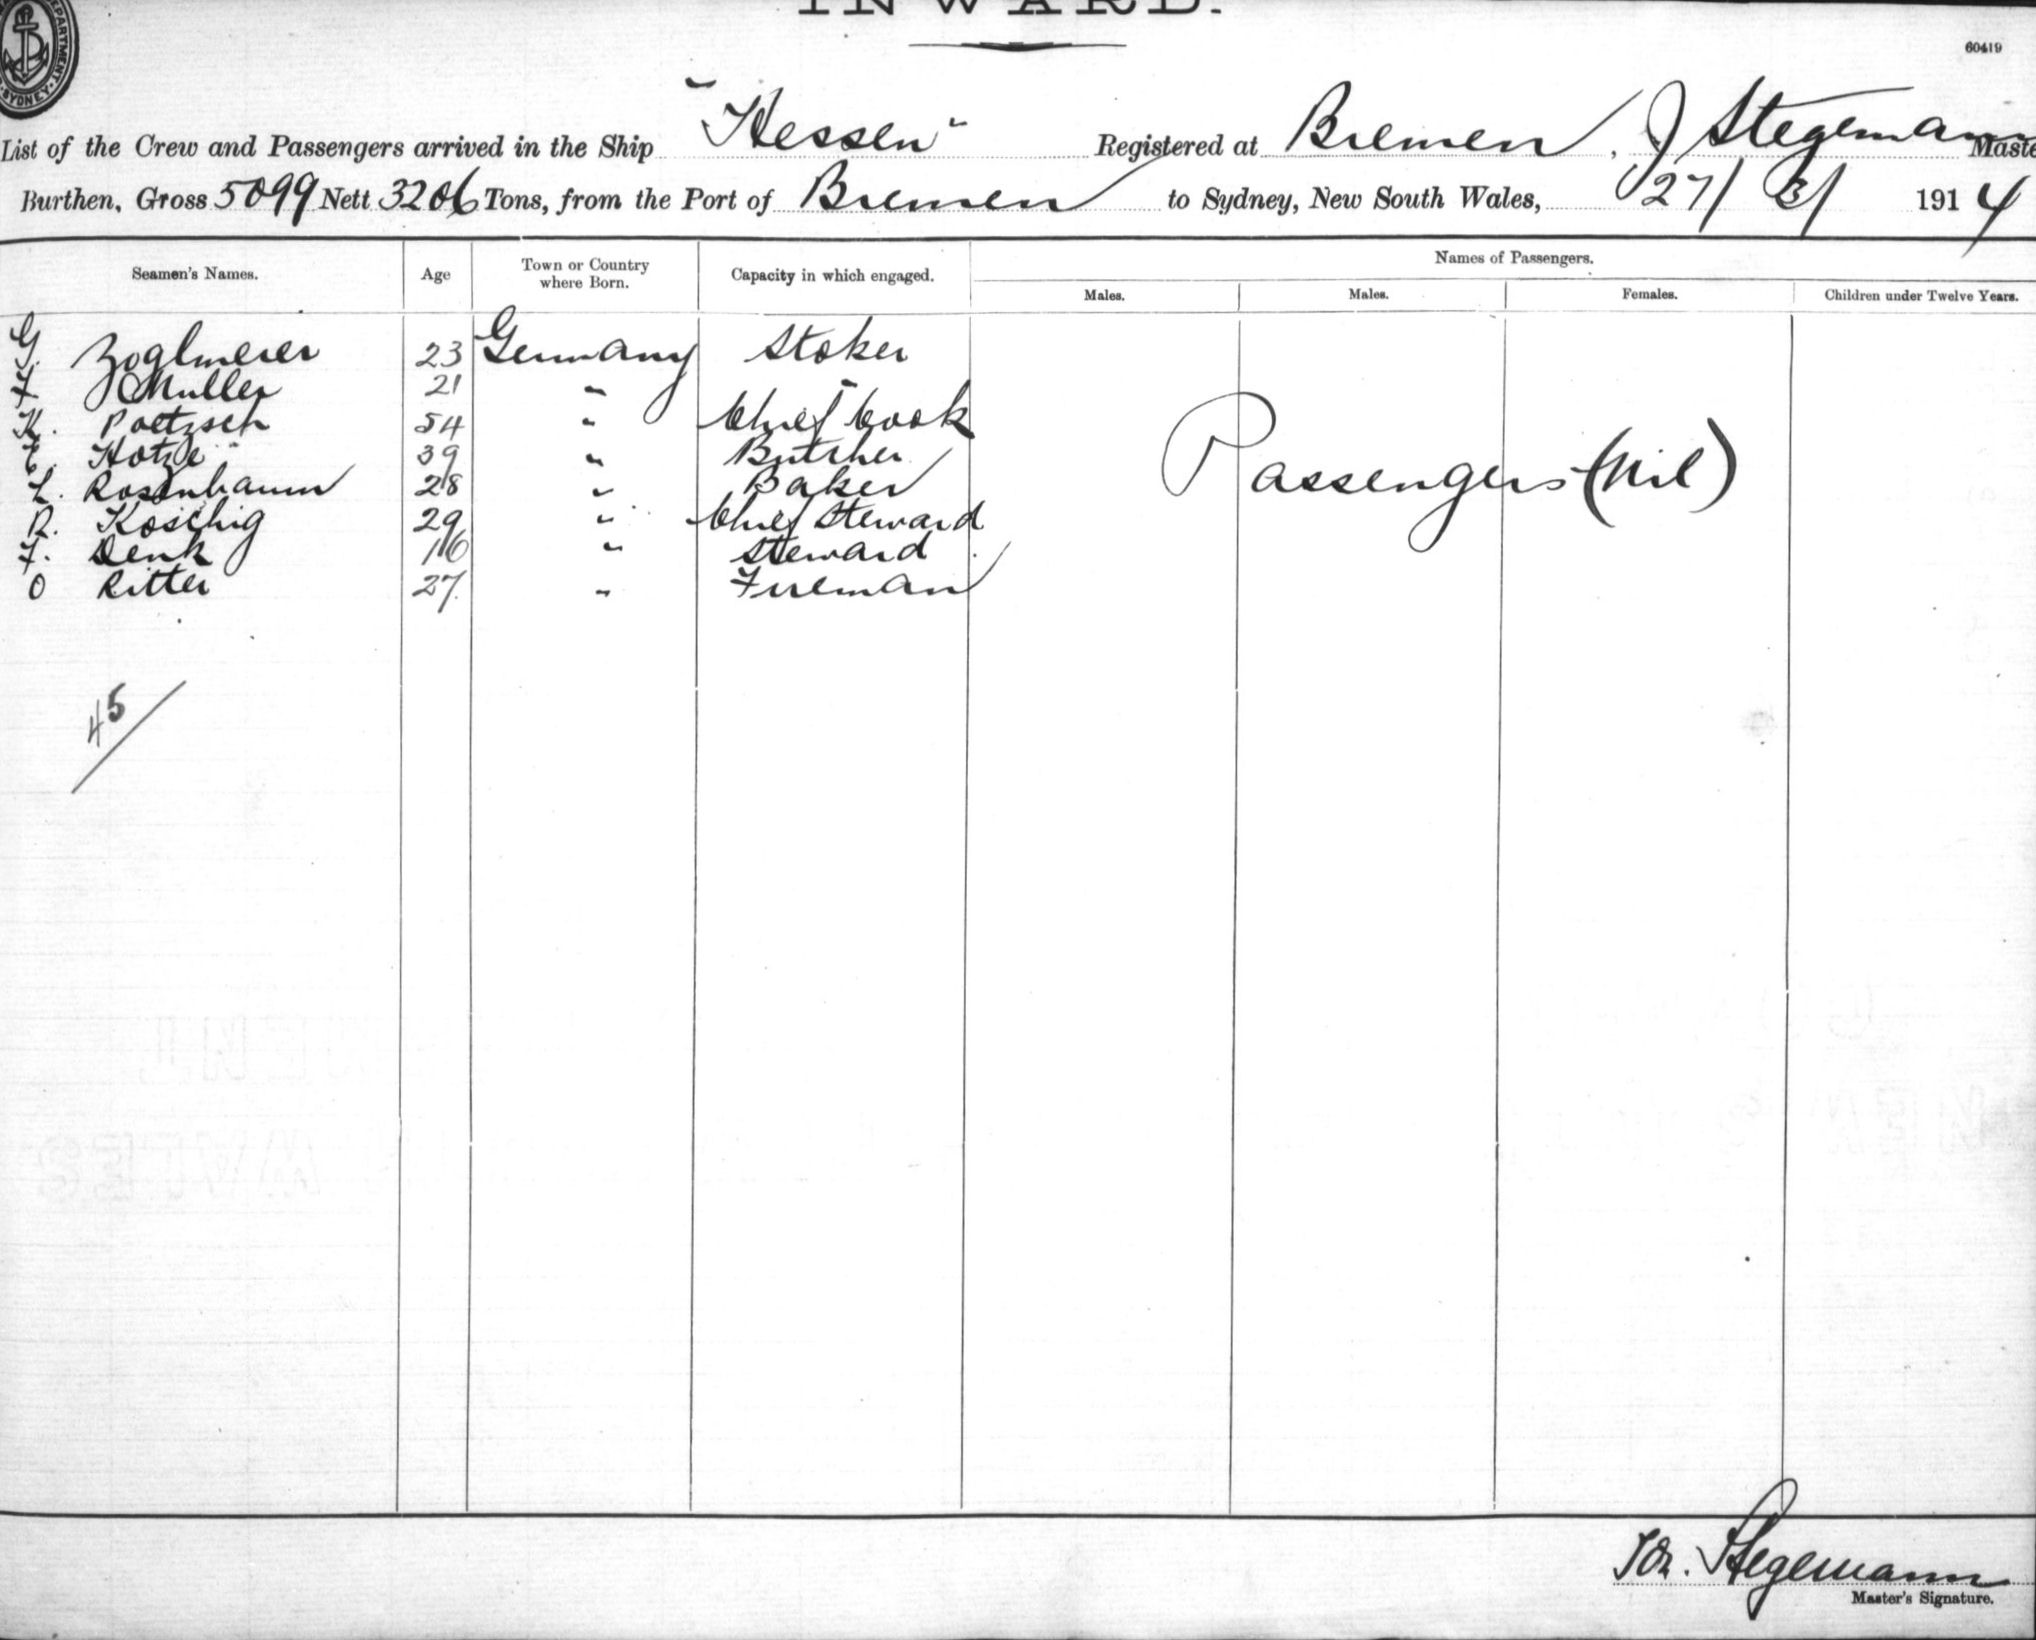 INWARD.
60419
DEPARTMENT SYDNEY
List of the Crew and Passengers arrived in the Ship "Hessen" Registered at Bremen, J Stegemann Maste
Burthen, Gross 5099 Nett 3206 Tons, from the Port of Bremen to Sydney, New South Wales, 27/3/ 1914
Seamen's Names. Age Town or Country where Born. Capacity in which engaged. Names of Passengers.
Males. Males. Females. Children under Twelve Years.
G. Zoglmeier 23 Germany Stoker
F Muller 21 " "
K. Poetzsch 54 " Chief Cook
E. Hotze 39 " Butcher
L. Rosenbaum 28 " Baker
R. Koschig 29 " Chief Steward
F. Denk 16 " Steward
O Ritter 27 " Fireman
Passengers (Nil)
45
Joh. Stegemann
Master's Signature.